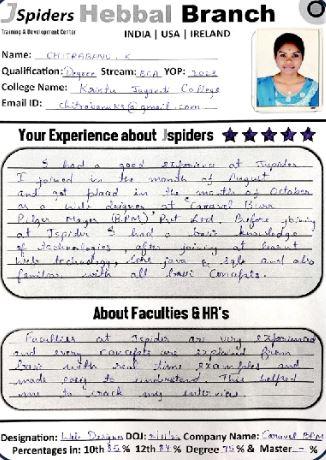 JSpiders Hebbal Branch
Training & Development Center
INDIA | USA | IRELAND
Name: CHITRABANU. K
Qualification: Degree Stream: BCA YOP: 2023
College Name: Kristu Jayanti College
Email ID: @gmail.com
Your Experience about Jspiders
I had a good experience at Jspider
I joined in the month of August
and got placed in the month of October
as a Web designer at Caravel
(BPM) Pvt Ltd. Before joining
at Jspider I had a basic knowledge
of technologies, after joining at learnt
Web technology, Core java & sql and also
familiar with all basic Concepts.
About Faculties & HR's
Faculties at Jspider are very experienced
and every concepts are explained from
basic with real time examples and
made easy to understand. This helped
me to crack my interview.
Designation: Web Designer DOJ: Company Name: Caravel BPM
Percentages in: 10th 85 % 12th % Degree 75 % & Master - %